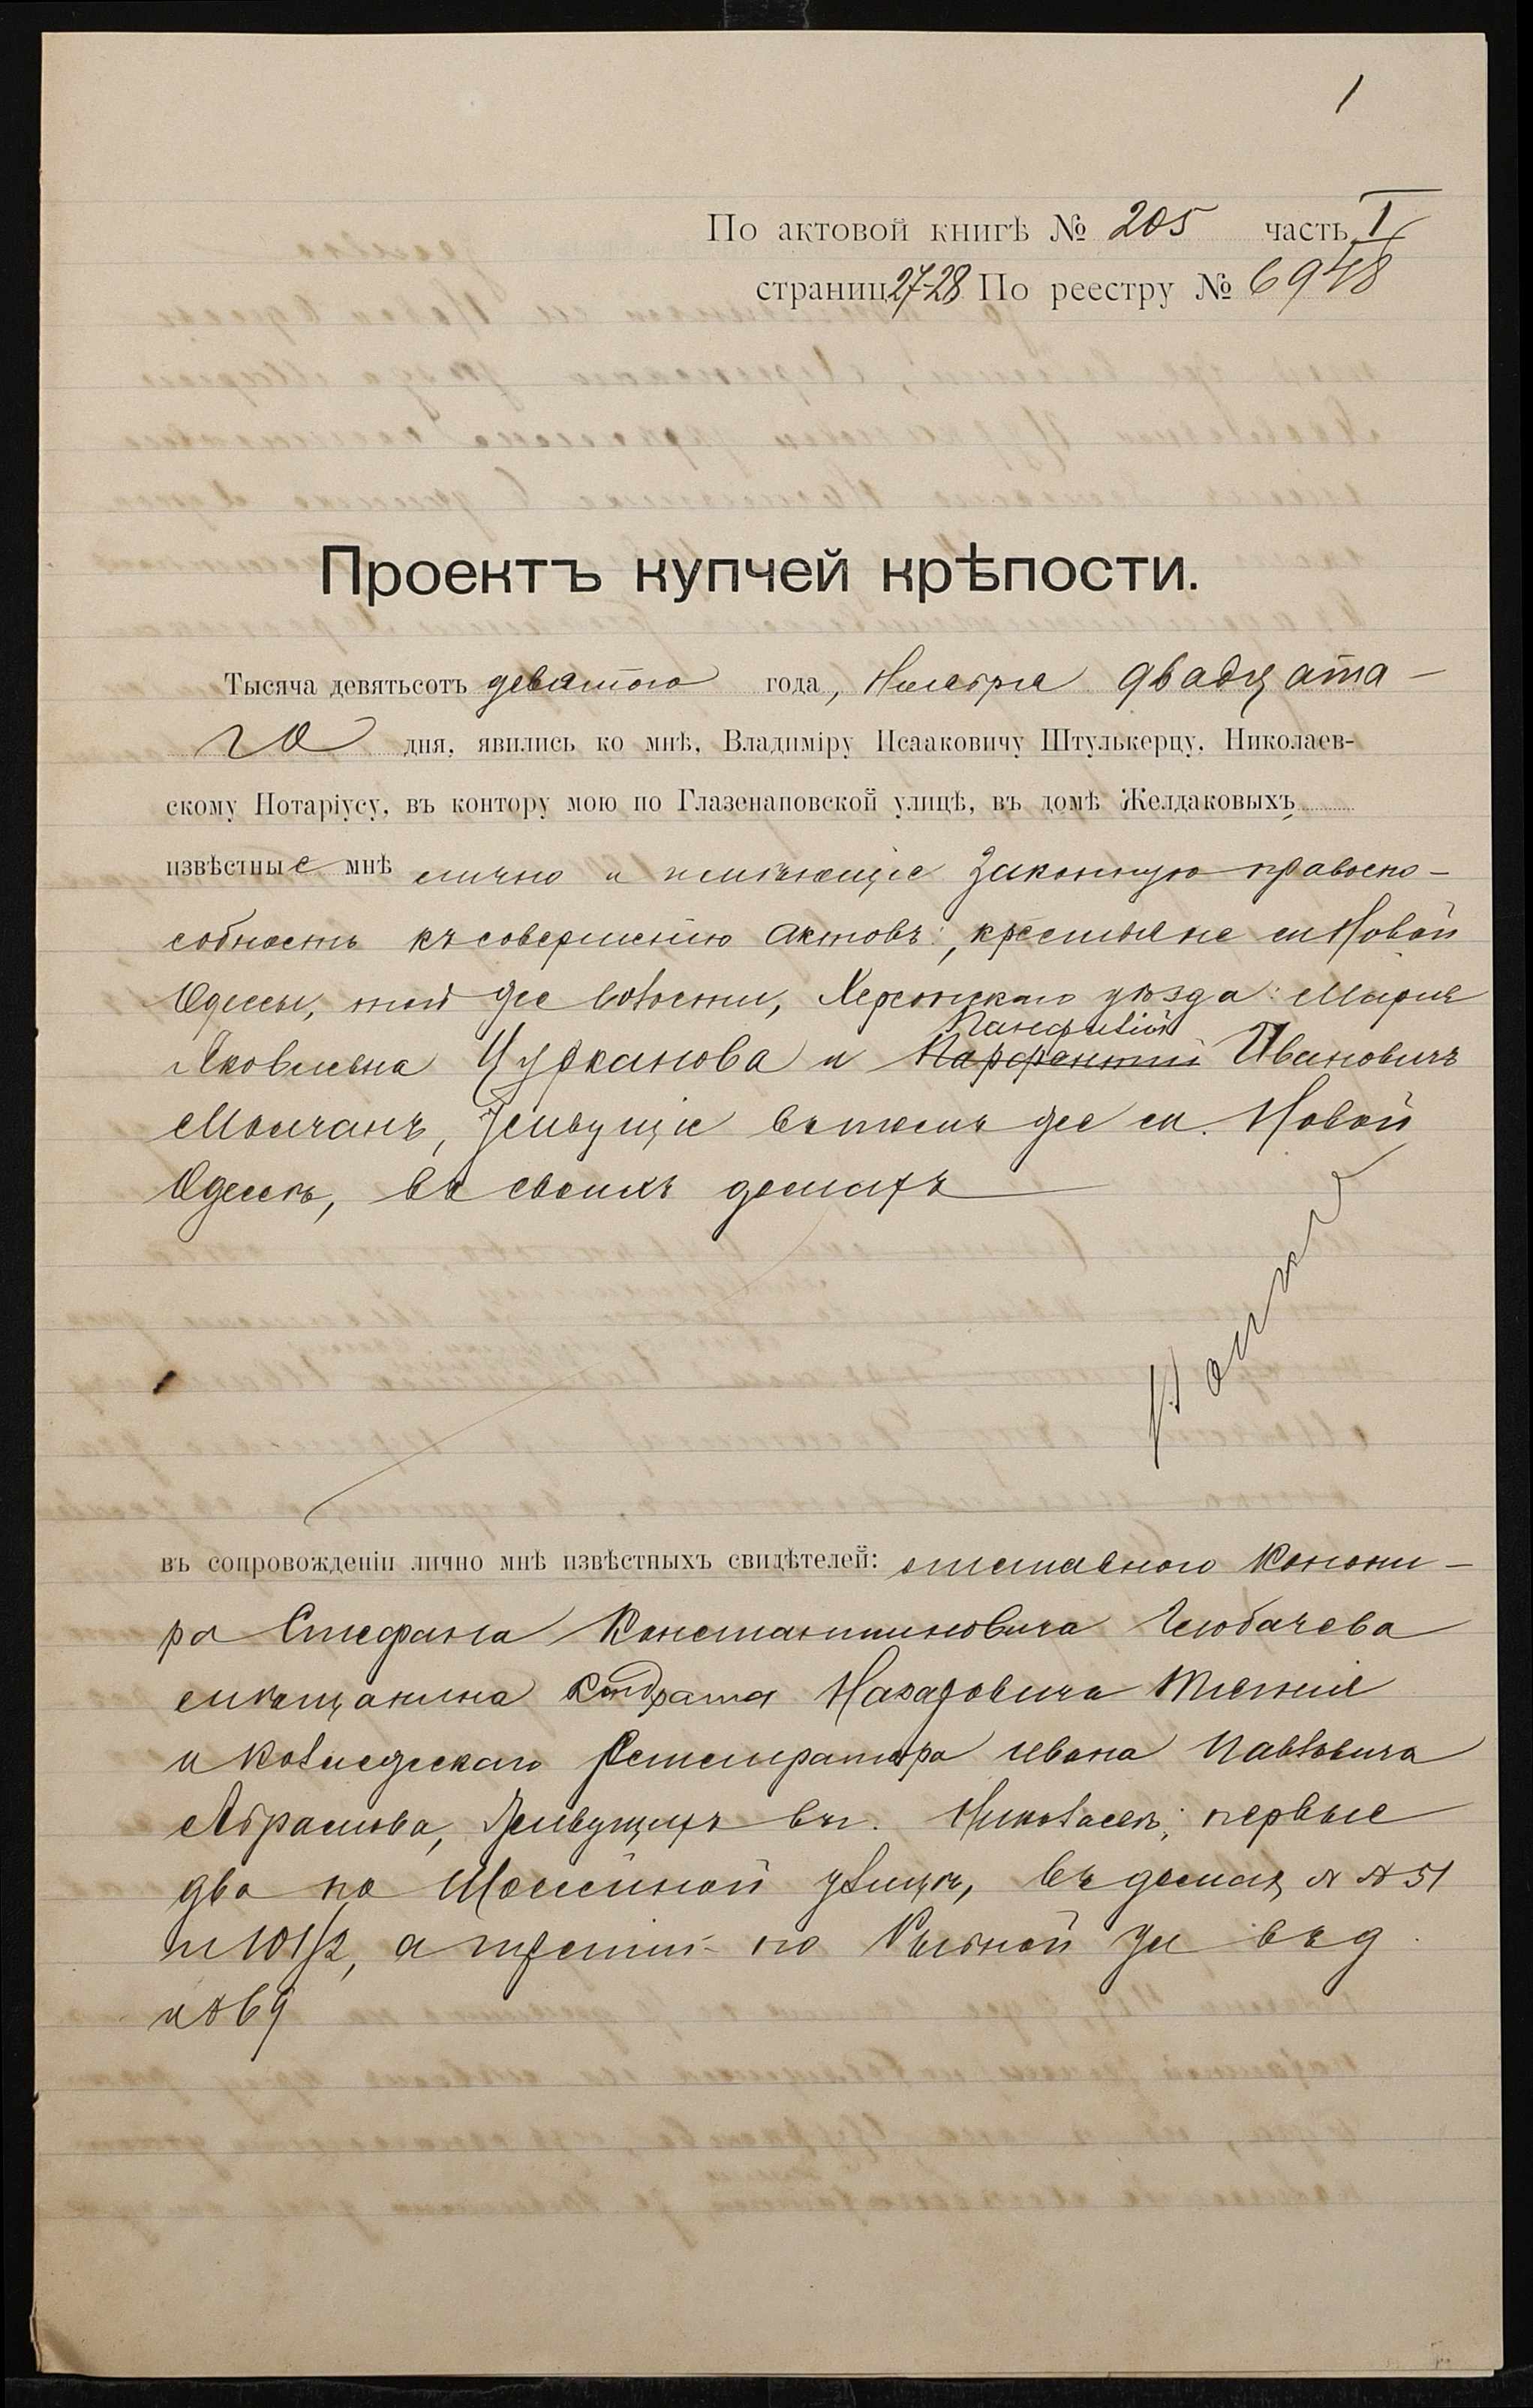 1
По актовой книгѣ № 205 часть I
страниц 27-28 По реестру № 6948
Проектъ купчей крѣпости.
Тысяча девятьсотъ девятого года, Ноября двадцата-
го дня, явились ко мнѣ, Владиміру Исааковичу Штулькерцу, Николаев-
скому Нотаріусу, въ контору мою по Глазенаповской улицѣ, въ домѣ Желдаковыхъ,
извѣстные мнѣ лично и имѣющіе законную правоспо-
собность къ совершенію актовъ: крестьяне м. Новой
Одессы, той же волости, Херсонскаго уѣзда: Марія
Панфилій
Яковлевна Цурканова и Парфентій Ивановичъ
Молчанъ, живущіе въ томъ же м. Новой
Одессѣ, въ своихъ домахъ
въ сопровожденіи лично мнѣ извѣстныхъ свидѣтелей: отставного канони-
ра Стефана Константиновича
мѣщанина Кондрата Назаровича
и Коллежскаго Регистратора Ивана Павловича
Абрамова, живущихъ въ г. Николаевѣ, первые
два по Шоссейной улицѣ, въ домах № № 51
и 101/2, а третій по Рыбной ул въ д.
№ 69